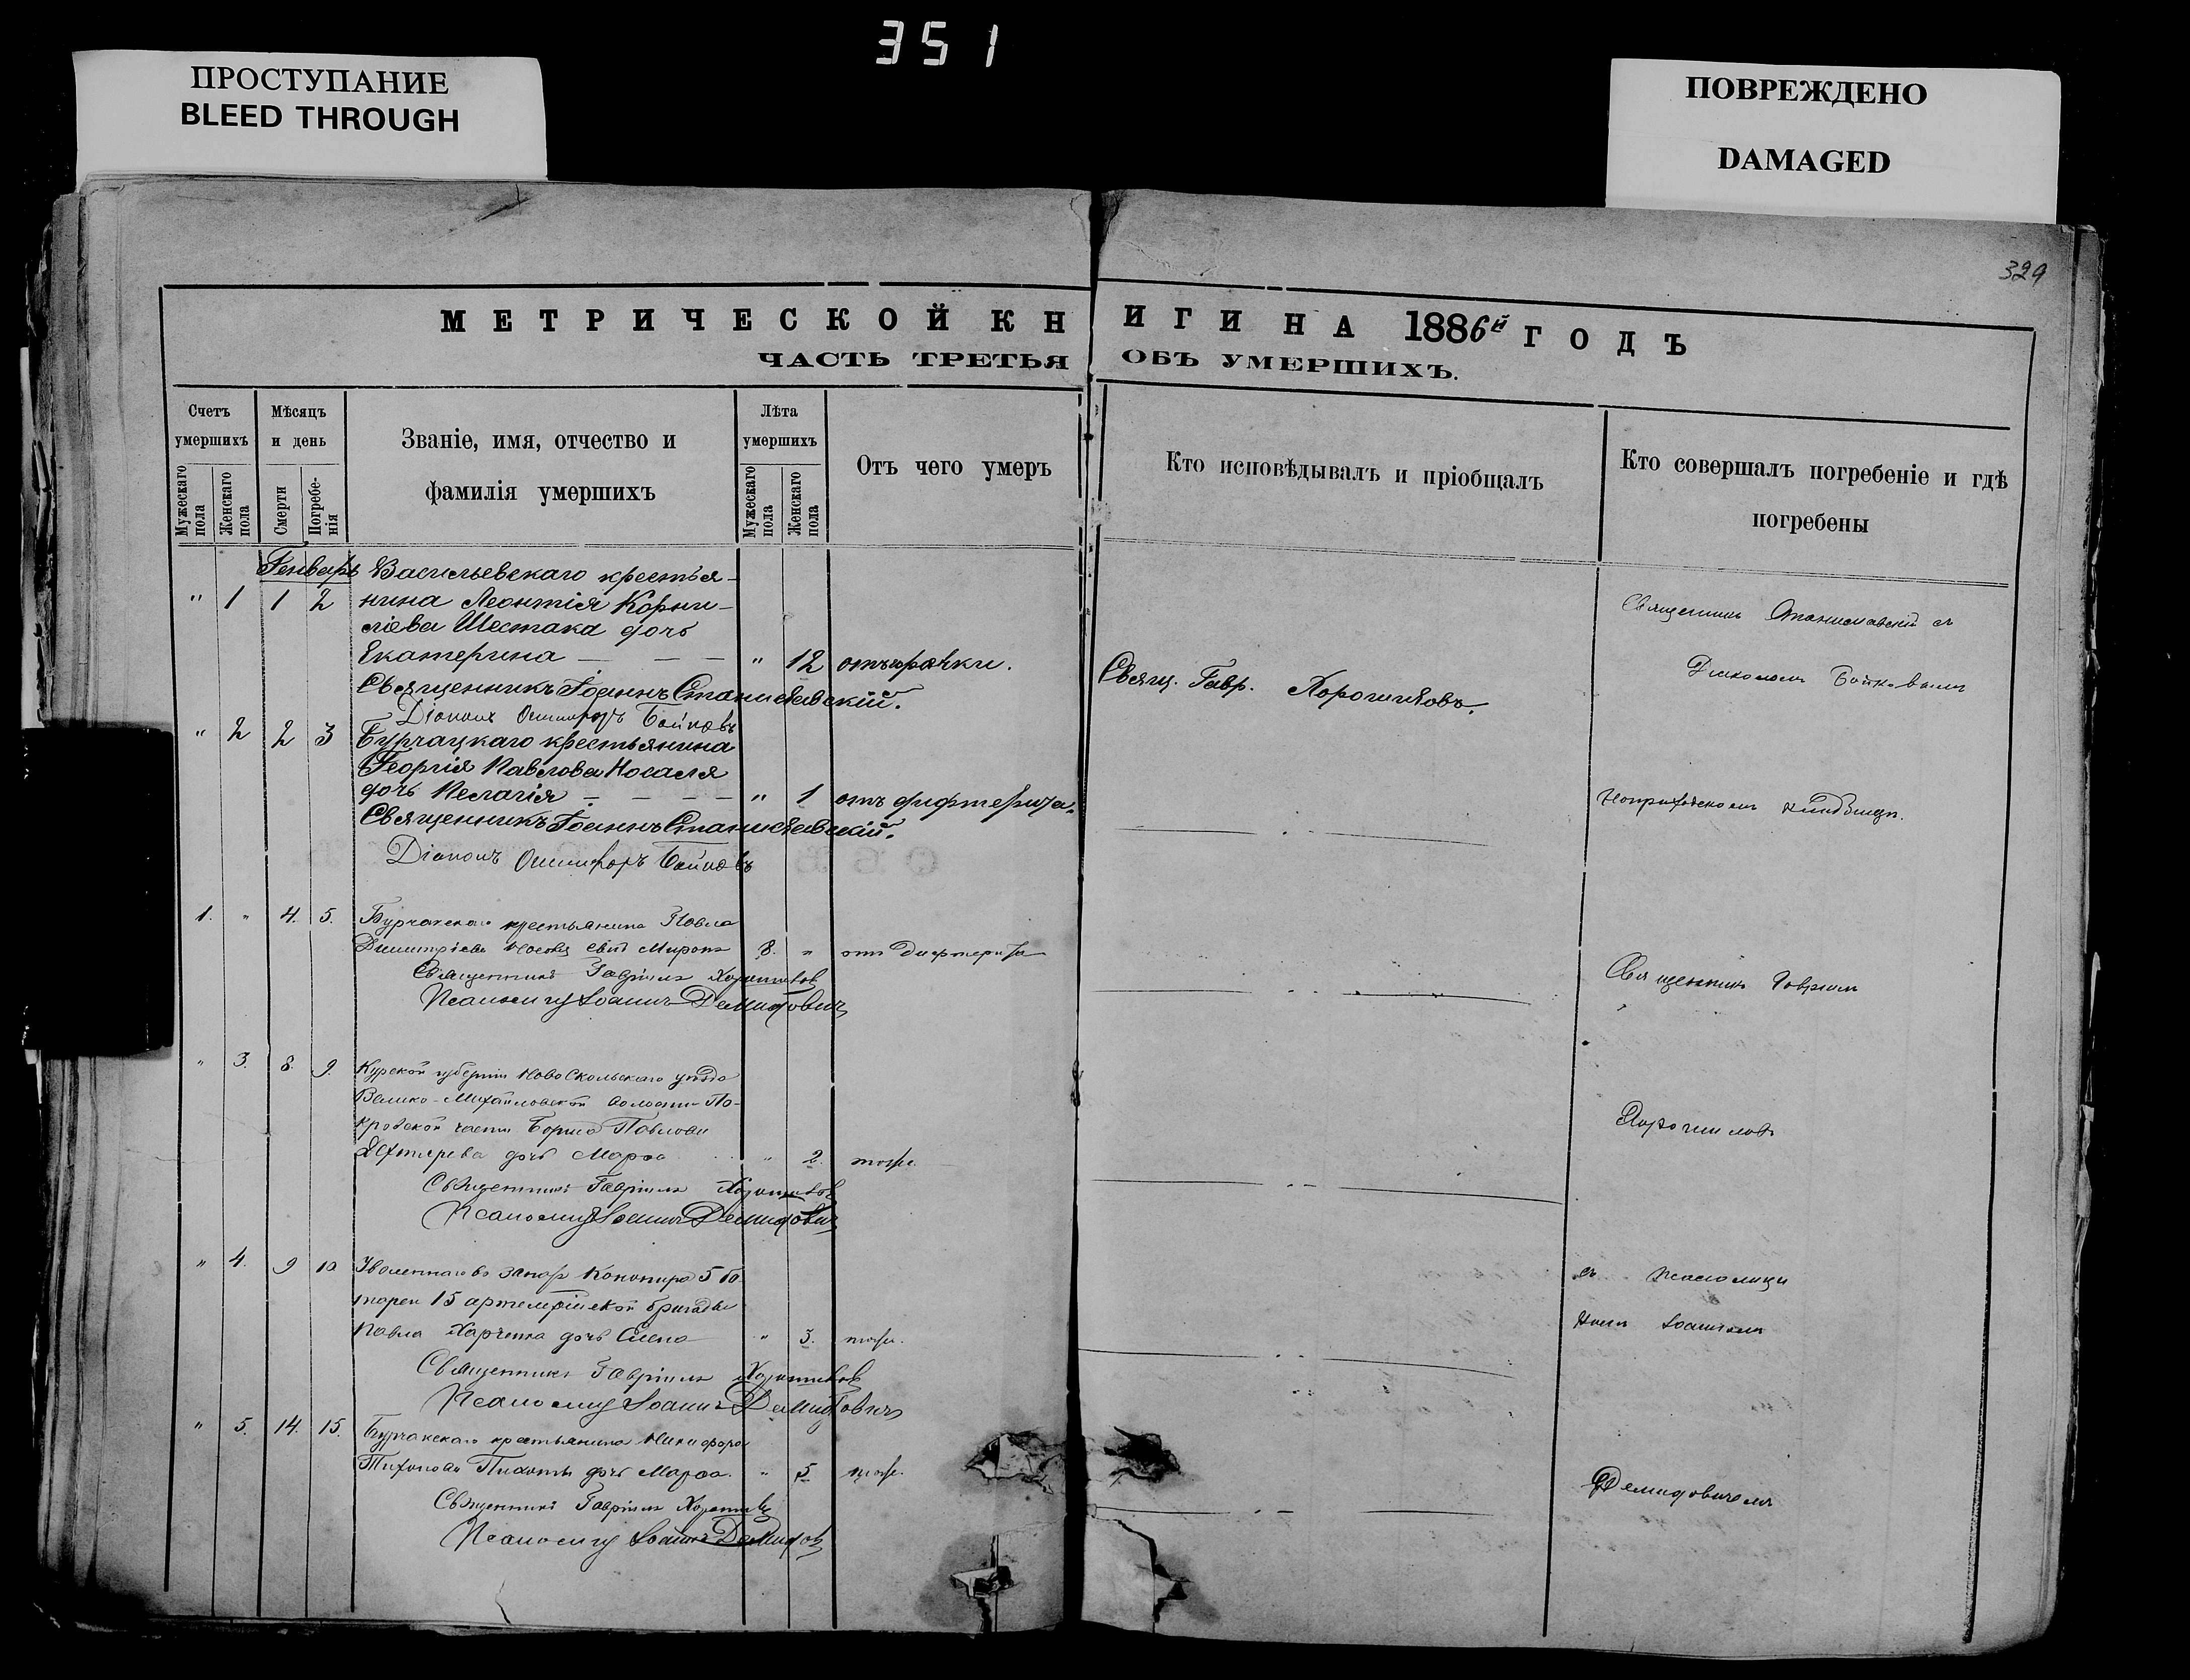 351
ПРОСТУПАНИЕ
BLEED THROUGH
ПОВРЕЖДЕНО
DAMAGED
329
МЕТРИЧЕСКОЙ КНИГИ НА 1886й ГОДЪ
ЧАСТЬ ТРЕТЬЯ ОБЪ УМЕРШИХЪ.
Счетъ умершихъ
Мужескаго пола
Женскаго пола
Мѣсяцъ и день
Смерти
Погребе-нія
Званіе, имя, отчество и
фамилія умершихъ
Лѣта умершихъ
Мужескаго пола
Женскаго пола
Отъ чего умеръ
Кто исповѣдывалъ и пріобщалъ
Кто совершалъ погребеніе и гдѣ
погребены
Генварь Васильевскаго крестья-
" 1 1 2 нина Леонтія Корни-
ліева Шестака дочь
Екатерина — — — " 12 отъ
Священникъ Іоаннъ Станиславскій.
Діаконъ Бойковъ
Свящ. Гавр. Хорошиловъ.
Священникъ Станиславскій съ
Діакономъ Бойковымъ
" 2 2 3 Бурчацкаго крестьянина
Георгія Павлова Носаля
дочь Пелагія — — — " 1 отъ дифтерита.
Священникъ Іоаннъ Станиславскій.
Діаконъ Бойковъ
1. " 4. 5. Бурчакскаго крестьянина Павла
Димитріева сынъ Миронъ 8. " отъ дифтерита
Священникъ Гавріилъ Хорошиловъ
Псаломщ Іоаннъ Демидовичъ
Священникъ Гавріилъ
" 3. 8. 9. Курской губерніи Новоскольскаго уѣзда
Велико-Михайловской волости По-
кровской части Бориса Павлова
дочь Марѳа " 2. тоже.
Священникъ Гавріилъ Хорошиловъ
Псаломщ Іоаннъ Демидовичъ
Хорошиловъ
" 4. 9 10 Уволеннаго въ запас 5 ба
тареи 15 артилерійской бригады
Павла Харченка дочь Елена " 3. тоже.
Священникъ Гавріилъ Хорошиловъ
Псаломщ Іоаннъ Демидовичъ
съ псаломщи
комъ Іоанномъ
" 5. 14. 15. Бурчакскаго крестьянина Никифора
Тихонова дочь Марѳа. " 5 тоже.
Священникъ Гавріилъ
Псаломщ Іоаннъ Демидов
Демидовичемъ